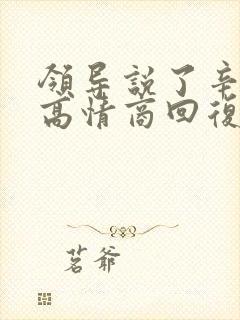 領导説了辛
高情商回復
茗爷